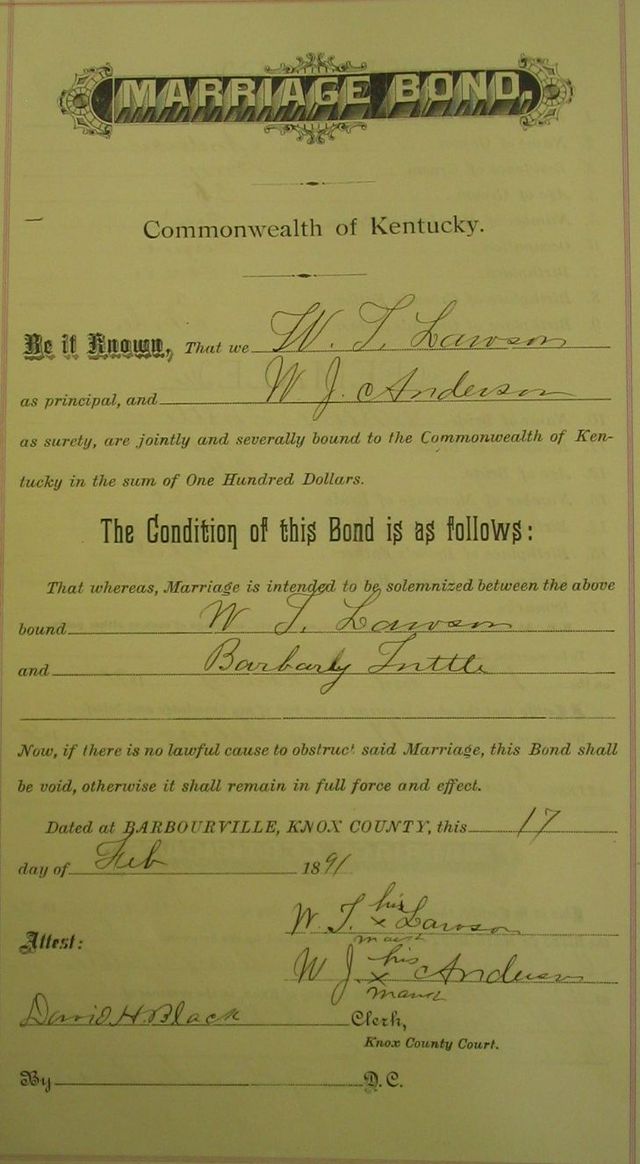 MARRIAGE BOND.
Commonwealth of Kentucky.
Be it Known, That we W. T. Lawson
as principal, and W. J. Anderson
as surety, are jointly and severally bound to the Commonwealth of Ken-
tucky in the sum of One Hundred Dollars.
The Condition of this Bond is as follows:
That whereas, Marriage is intended to be solemnized between the above
bound W. T. Lawson
and Barbary Tuttle
Now, if there is no lawful cause to obstruct said Marriage, this Bond shall
be void, otherwise it shall remain in full force and effect.
Dated at BARBOURVILLE, KNOX COUNTY, this 17
day of Feb 1891
his
W. T. x Lawson
mark
Attest:
his
W J x Anderson
mark
David H. Black Clerk,
Knox County Court.
By D. C.